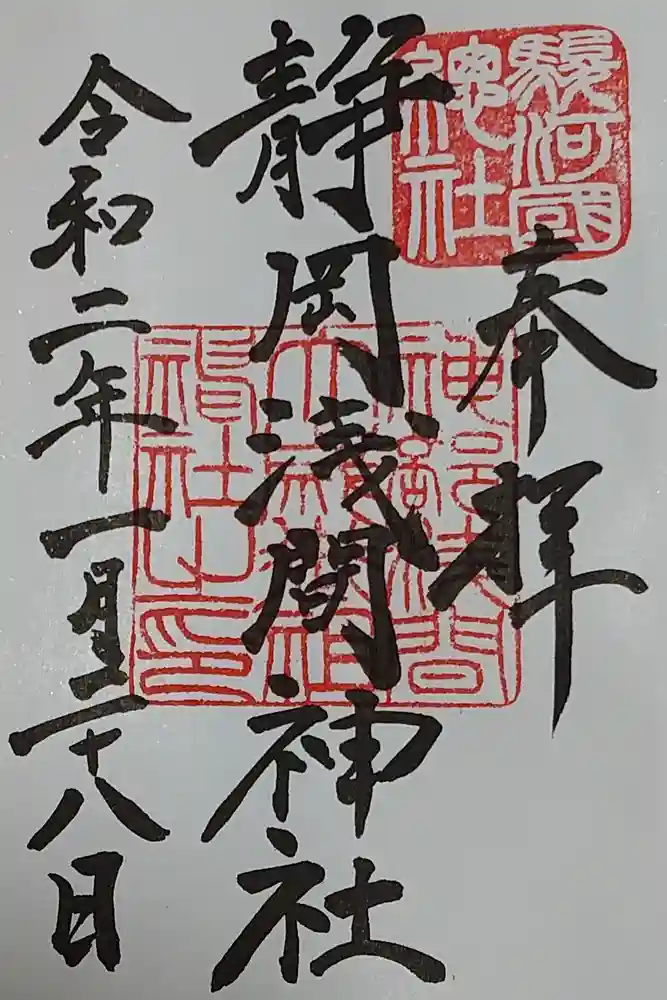 駿河國
總社
奉拝
静岡浅間神社
神部淺間
大歳御祖
神社之印
令和二年一月二十八日